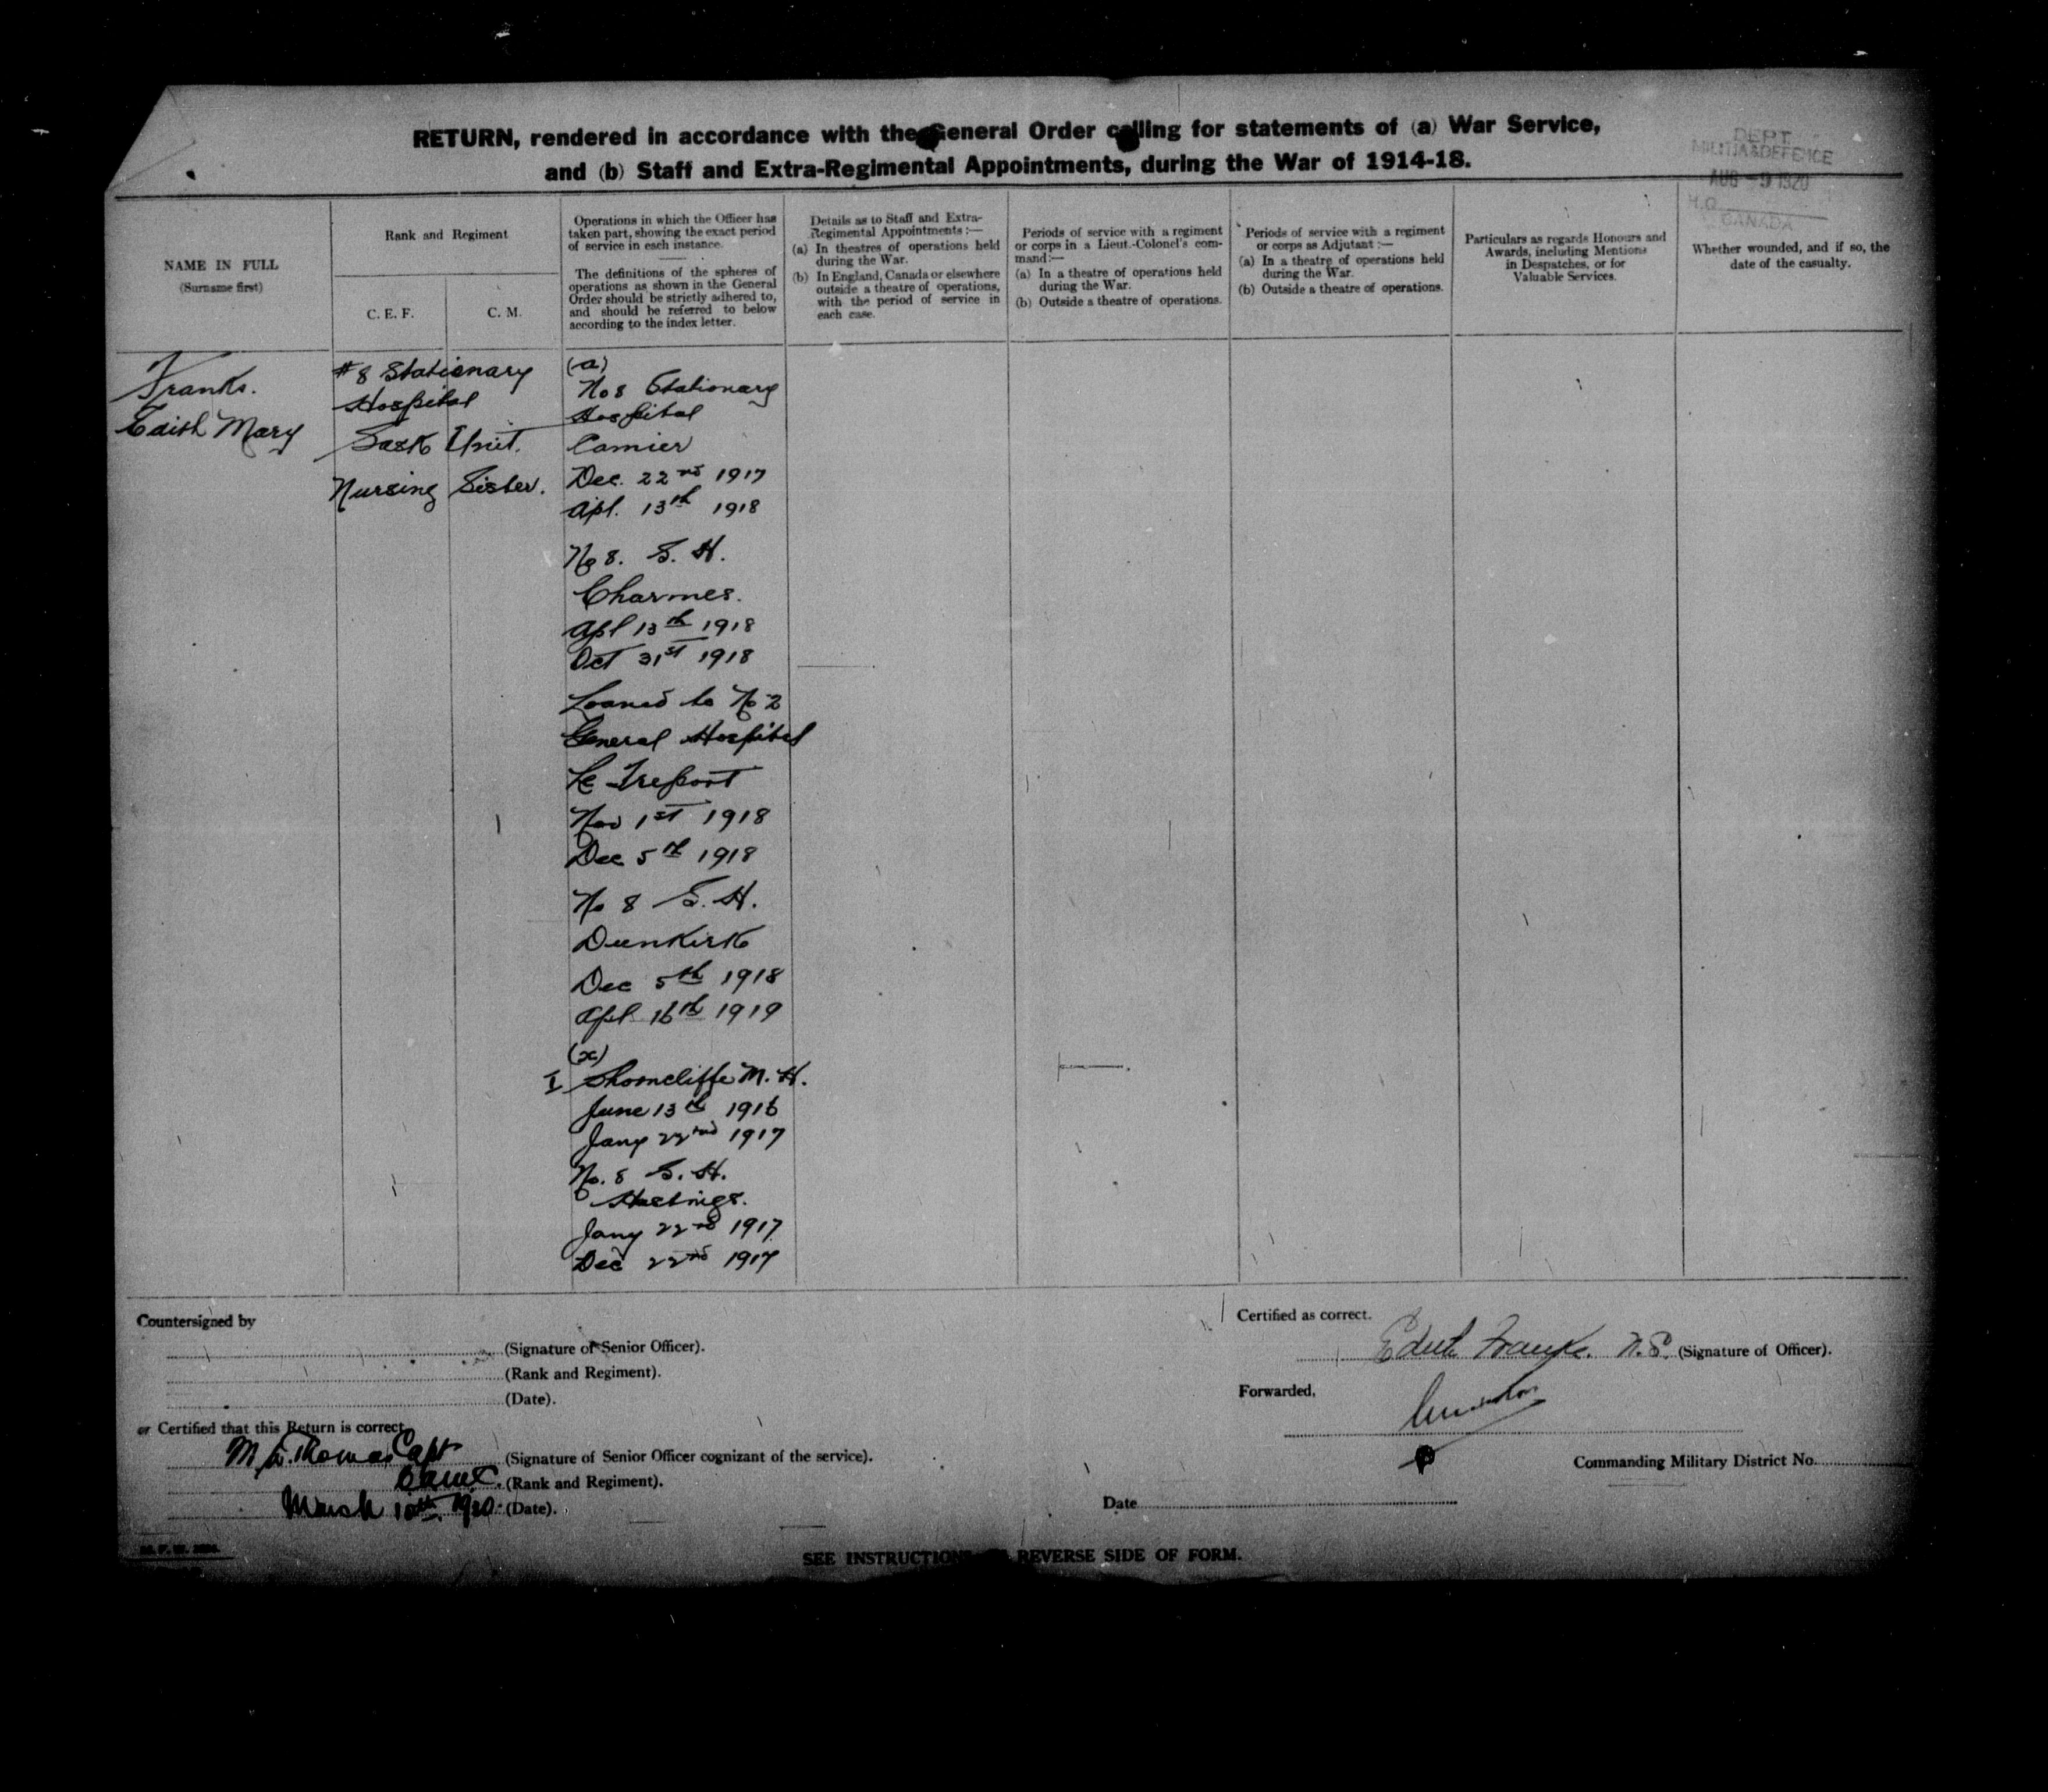 RETURN, rendered in accordance with the General Order calling for statements of (a) War Service,
and (b) Staff and Extra-Regimental Appointments, during the War of 1914-18.
DEPT.
MILITIA & DEFENCE
AUG -9 1920
H.Q.
CANADA
NAME IN FULL
(Surname first)
Rank and Regiment
C. E. F.
C. M.
Operations in which the Officer has
taken part, showing the exact period
of service in each instance.
The definitions of the spheres of
operations as shown in the General
Order should be strictly adhered to,
and should be referred to below
according to the index letter.
Details as to Staff and Extra-
Regimental Appointments :—
(a) In theatres of operations held
during the War.
(b) In England, Canada or elsewhere
outside a theatre of operations,
with the period of service in
each case.
Periods of service with a regiment
or corps in a Lieut.-Colonel's com-
mand:—
(a) In a theatre of operations held
during the War.
(b) Outside a theatre of operations.
Periods of service with a regiment
or corps as Adjutant :—
(a) In a theatre of operations held
during the War.
(b) Outside a theatre of operations.
Particulars as regards Honours and
Awards, including Mentions
in Despatches, or for
Valuable Services.
Whether wounded, and if so, the
date of the casualty.
Franks.
Edith Mary
#8 Stationary
Hospital
Sask Unit.
Nursing Sister.
(a)
No 8 Stationary
Hospital
Camier
Dec. 22nd 1917
Apl. 13th 1918
No 8. S. H.
Charmes.
Apl 13th 1918
Oct 31st 1918
Loaned to No 2
General Hospital
Le Treport
Nov 1st 1918
Dec 5th 1918
No 8 S. H.
Dunkirk
Dec 5th 1918
Apl 16th 1919
(x)
I Shorncliffe M. H.
June 13th 1916
Jany 22nd 1917
No. 8 S. H.
Hastings.
Jany 22nd 1917
Dec 22nd 1917
Countersigned by
(Signature of Senior Officer).
(Rank and Regiment).
(Date).
or Certified that this Return is correct
Thomas Capt (Signature of Senior Officer cognizant of the service).
CAMC. (Rank and Regiment).
March 10th 1920. (Date).
Certified as correct.
Edith Franks. N.S. (Signature of Officer).
Forwarded,
Commanding Military District No.
Date
SEE INSTRUCTIONS REVERSE SIDE OF FORM.